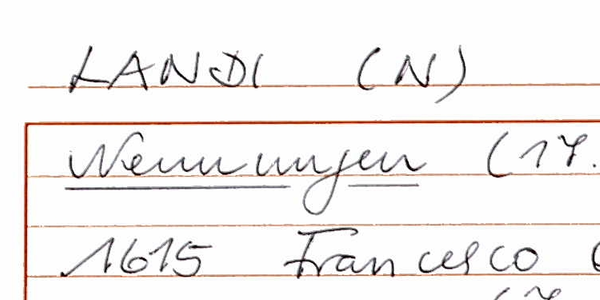 LANDI (N)
Nennungen (17.
1615 Francesco (